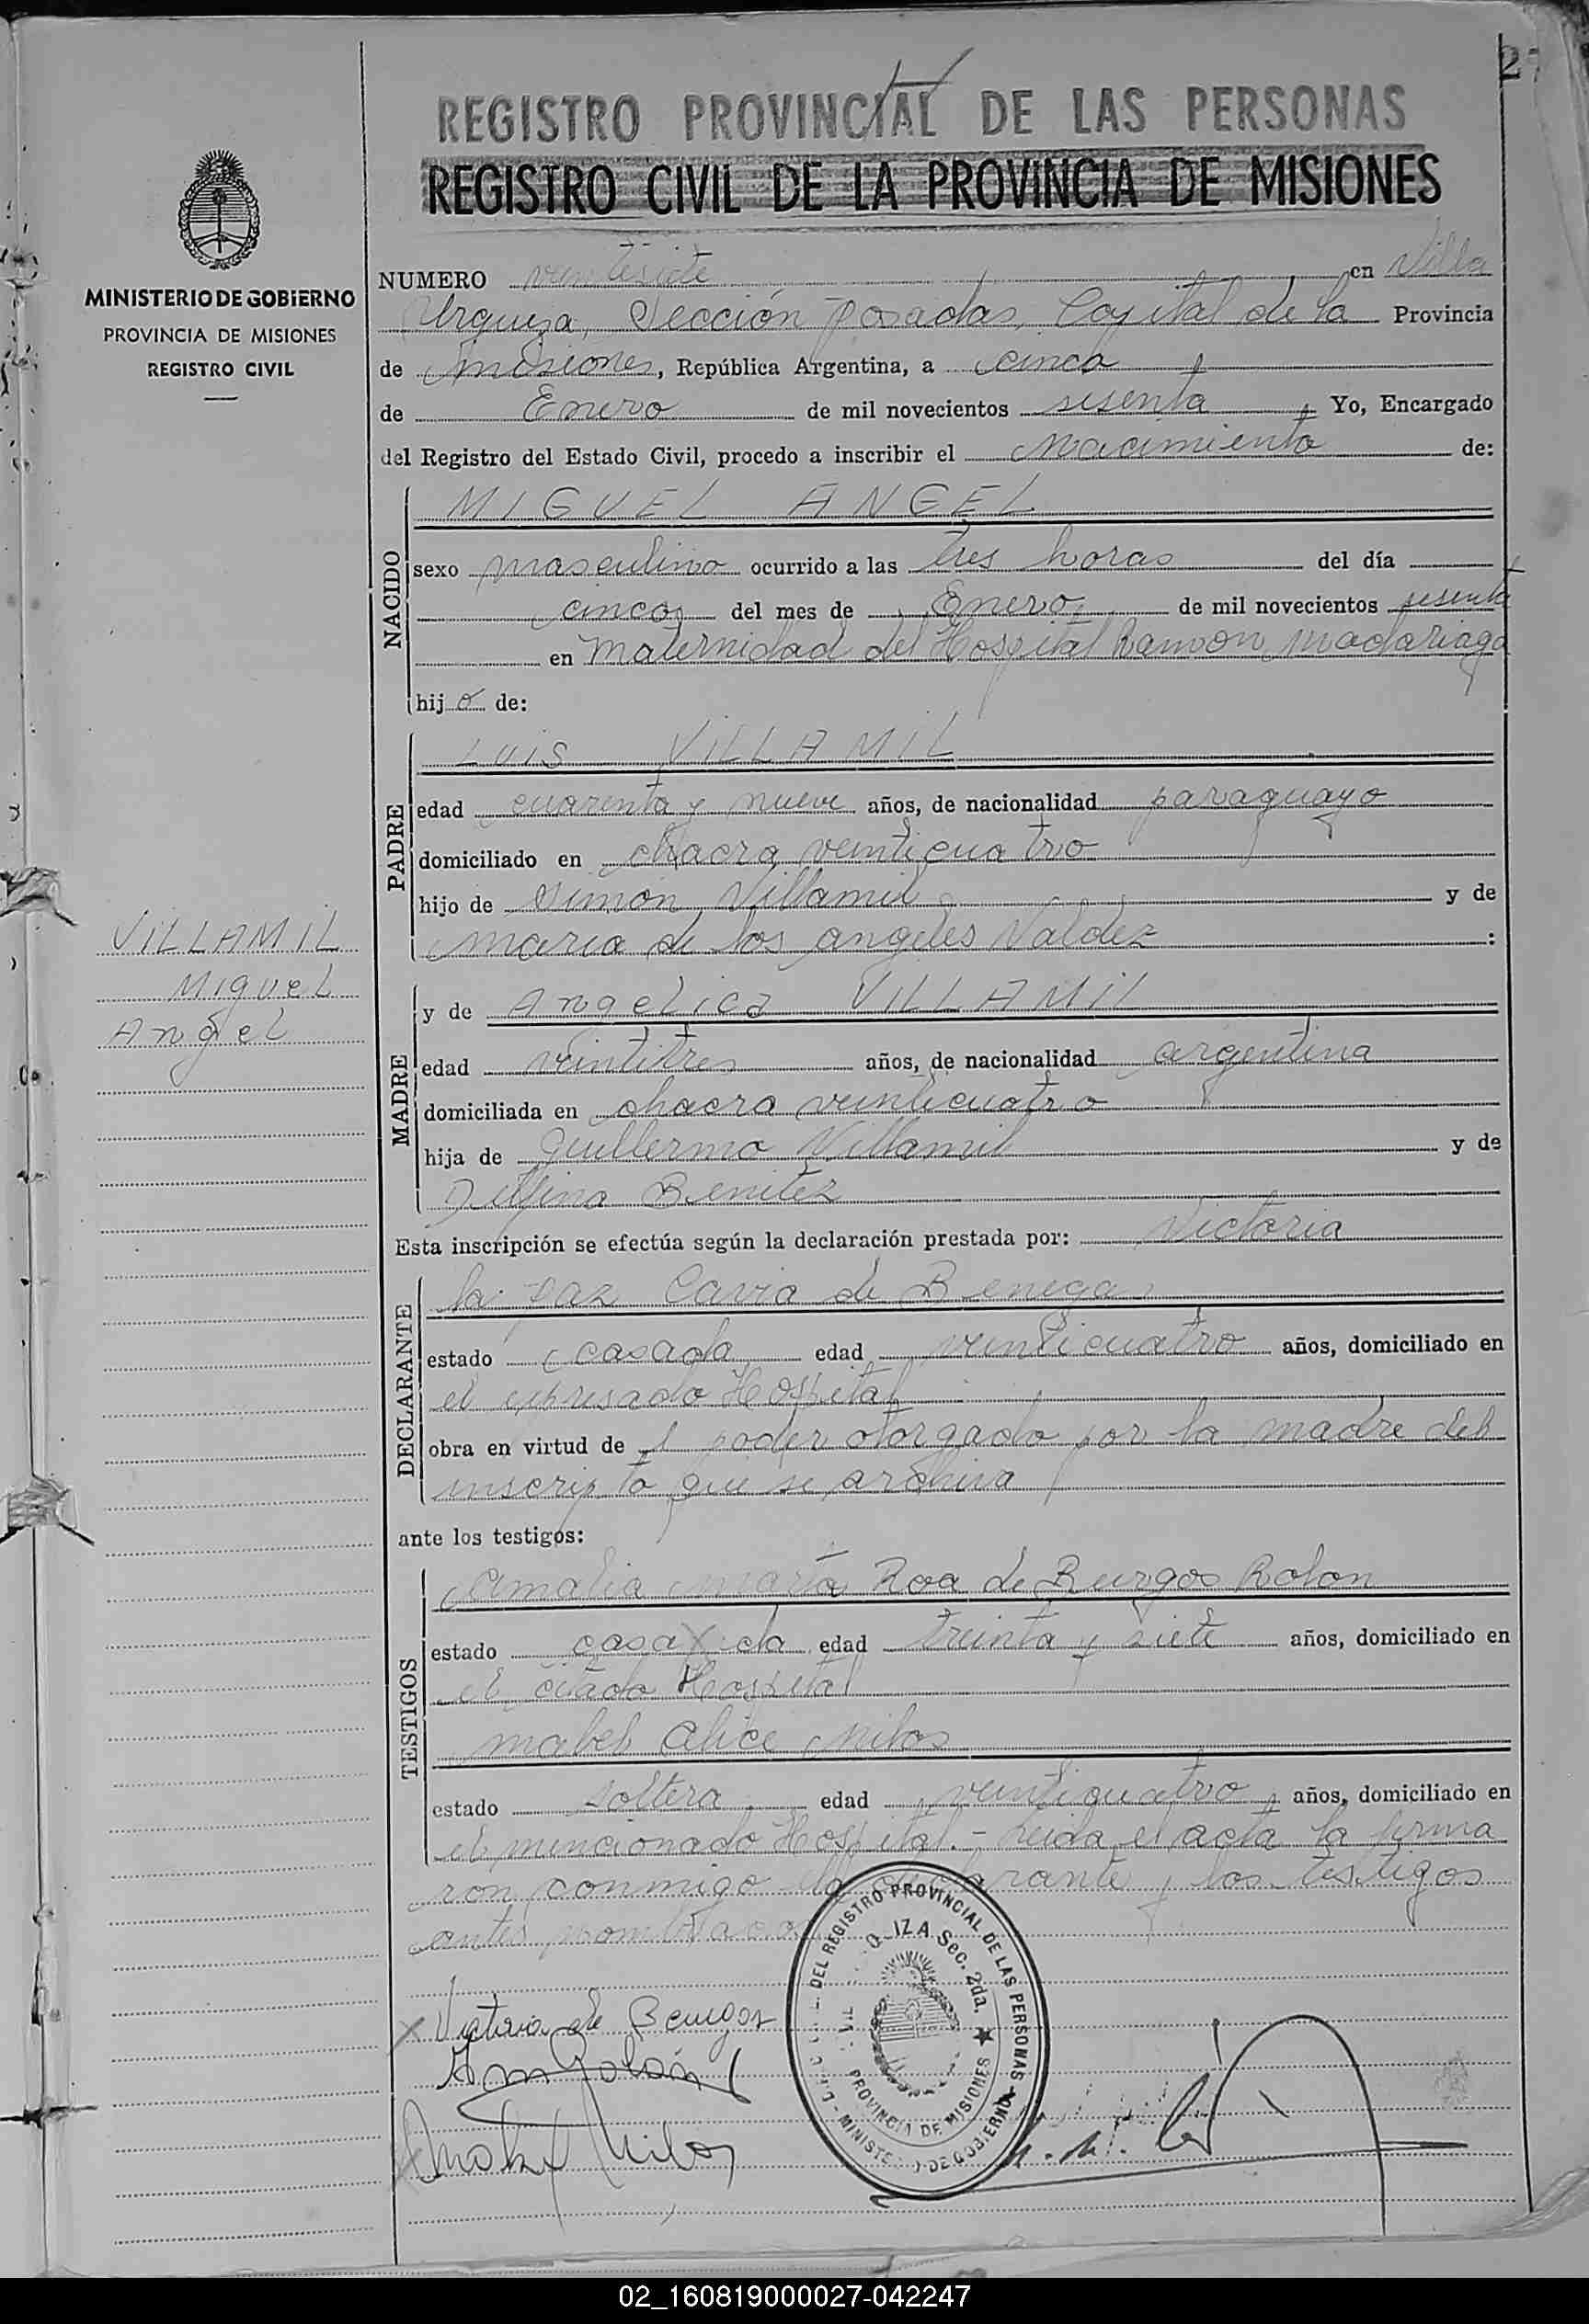 27
REGISTRO PROVINCIAL DE LAS PERSONAS
REGISTRO CIVIL DE LA PROVINCIA DE MISIONES
MINISTERIO DE GOBIERNO
PROVINCIA DE MISIONES
REGISTRO CIVIL
NUMERO veintisiete en Villa
Urquiza, Sección Posadas, Capital de la Provincia
de Misiones, República Argentina, a cinco
de Enero de mil novecientos sesenta, Yo, Encargado
del Registro del Estado Civil, procedo a inscribir el Nacimiento de:
NACIDO
MIGUEL ANGEL
sexo masculino ocurrido a las tres horas del día
cinco, del mes de Enero, de mil novecientos sesenta
en Maternidad del Hospital Ramon Madariaga
hijo de:
PADRE
LUIS VILLAMIL
edad cuarenta y nueve años, de nacionalidad paraguayo
domiciliado en chacra veinticuatro
hijo de Simón Villamil y de
Maria de los angeles Valdez :
VILLAMIL
Miguel
Angel
MADRE
y de Angelica VILLAMIL
edad veintitres años, de nacionalidad argentina
domiciliada en chacra veinticuatro
hija de Guillermo Villamil y de
Delfina Benitez
Esta inscripción se efectúa según la declaración prestada por: Victoria
DECLARANTE
la paz de Benega
estado casada edad veinticuatro años, domiciliado en
el expresado Hospital
obra en virtud del poder otorgado por la madre del
inscripto que se archiva
ante los testigos:
TESTIGOS
Amalia María Roa de Burgos Rolon
estado casada edad treinta y siete años, domiciliado en
el citado Hospital
Mabel Alice Milos
estado soltera edad veinticuatro, años, domiciliado en
el mencionado Hospital.- Leida el acta la firma
ron conmigo la declarante y los testigos
antes nombrados
Victoria de Benegas
DEL REGISTRO PROVINCIAL DE LAS PERSONAS
MINISTE DE GOBIERNO
IZA Sec. 2da.
PROVINCIA DE MISIONES
Mabel Milos
02_160819000027-042247